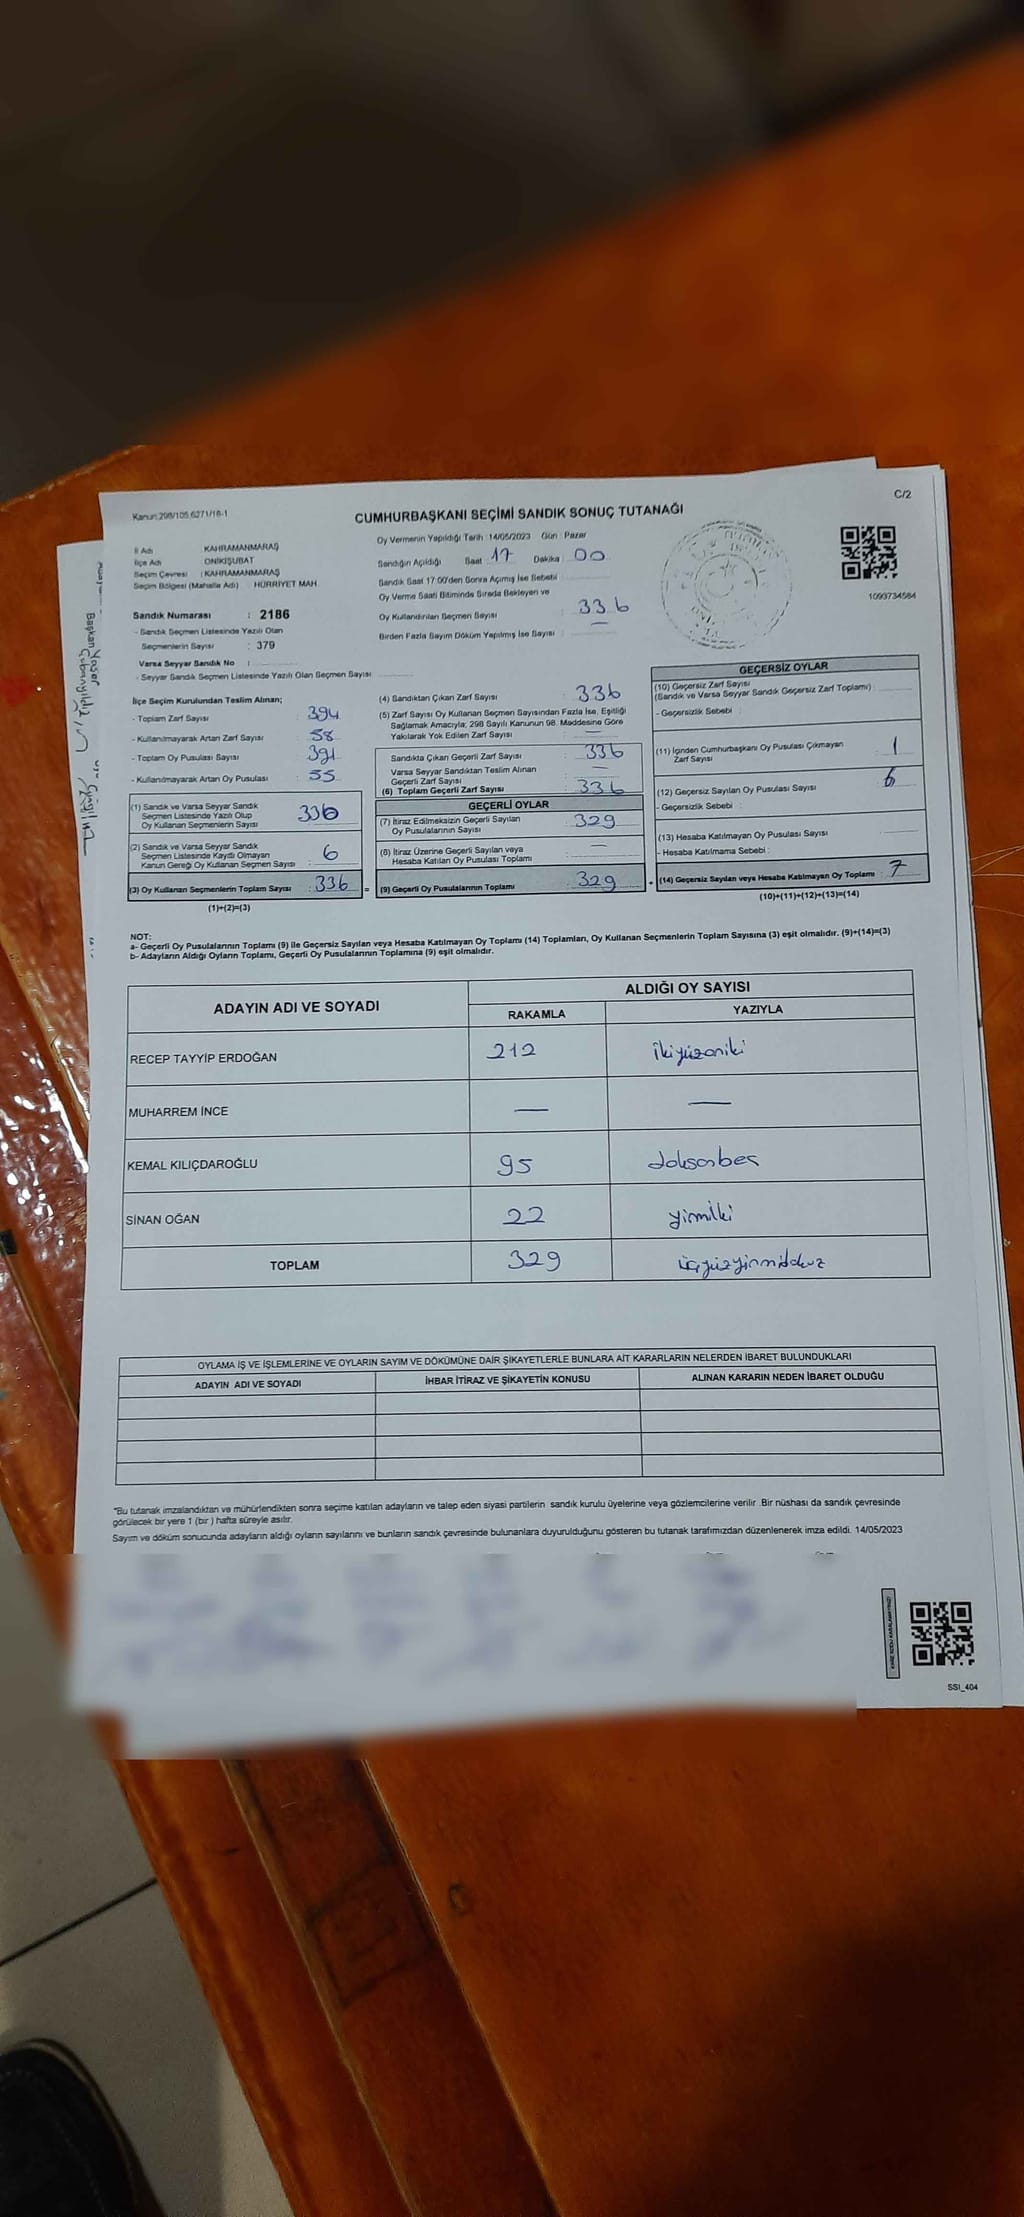 Kanun:298/105,6271/18-1
C/2
CUMHURBAŞKANI SEÇİMİ SANDIK SONUÇ TUTANAĞI
İl Adı : KAHRAMANMARAŞ
İlçe Adı : ONİKİŞUBAT
Seçim Çevresi : KAHRAMANMARAŞ
Seçim Bölgesi (Mahalle Adı) : HÜRRİYET MAH.
Sandık Numarası : 2186
- Sandık Seçmen Listesinde Yazılı Olan
Seçmenlerin Sayısı : 379
Varsa Seyyar Sandık No :
- Seyyar Sandık Seçmen Listesinde Yazılı Olan Seçmen Sayısı :
Oy Vermenin Yapıldığı Tarih :14/05/2023 Gün : Pazar
Sandığın Açıldığı Saat 17 Dakika 00
Sandık Saat 17.00'den Sonra Açımış İse Sebebi :
Oy Verme Saati Bitiminde Sırada Bekleyen ve
Oy Kullandırılan Seçmen Sayısı : 336
Birden Fazla Sayım Döküm Yapılmış İse Sayısı : —
1093734584
İlçe Seçim Kurulundan Teslim Alınan;
- Toplam Zarf Sayısı : 394
- Kullanılmayarak Artan Zarf Sayısı : 58
- Toplam Oy Pusulası Sayısı : 391
- Kullanılmayarak Artan Oy Pusulası : 55
(1) Sandık ve Varsa Seyyar Sandık
Seçmen Listesinde Yazılı Olup
Oy Kullanan Seçmenlerin Sayısı 336
(2) Sandık ve Varsa Seyyar Sandık
Seçmen Listesinde Kaydı Olmayan
Kanun Gereği Oy Kullanan Seçmen Sayısı : 6
(3) Oy Kullanan Seçmenlerin Toplam Sayısı : 336 =
(1)+(2)=(3)
(4) Sandıktan Çıkan Zarf Sayısı : 336
(5) Zarf Sayısı Oy Kullanan Seçmen Sayısından Fazla İse, Eşitliği
Sağlamak Amacıyla; 298 Sayılı Kanunun 98. Maddesine Göre
Yakılarak Yok Edilen Zarf Sayısı : —
Sandıkta Çıkan Geçerli Zarf Sayısı : 336
Varsa Seyyar Sandıktan Teslim Alınan
Geçerli Zarf Sayısı : —
(6) Toplam Geçerli Zarf Sayısı : 336
GEÇERLİ OYLAR
(7) İtiraz Edilmeksizin Geçerli Sayılan
Oy Pusulalarının Sayısı : 329
(8) İtiraz Üzerine Geçerli Sayılan veya
Hesaba Katılan Oy Pusulası Toplamı : —
(9) Geçerli Oy Pusulalarının Toplamı : 329 +
GEÇERSİZ OYLAR
(10) Geçersiz Zarf Sayısı
(Sandık ve Varsa Seyyar Sandık Geçersiz Zarf Toplamı) :
- Geçersizlik Sebebi :
(11) İçinden Cumhurbaşkanı Oy Pusulası Çıkmayan
Zarf Sayısı : 1
(12) Geçersiz Sayılan Oy Pusulası Sayısı : 6
- Geçersizlik Sebebi :
(13) Hesaba Katılmayan Oy Pusulası Sayısı :
- Hesaba Katılmama Sebebi :
(14) Geçersiz Sayılan veya Hesaba Katılmayan Oy Toplamı : 7
(10)+(11)+(12)+(13)=(14)
NOT:
a- Geçerli Oy Pusulalarının Toplamı (9) ile Geçersiz Sayılan veya Hesaba Katılmayan Oy Toplamı (14) Toplamları, Oy Kullanan Seçmenlerin Toplam Sayısına (3) eşit olmalıdır. (9)+(14)=(3)
b- Adayların Aldığı Oyların Toplamı, Geçerli Oy Pusulalarının Toplamına (9) eşit olmalıdır.
ADAYIN ADI VE SOYADI ALDIĞI OY SAYISI
RAKAMLA YAZIYLA
RECEP TAYYİP ERDOĞAN 212 ikiyüzoniki
MUHARREM İNCE — —
KEMAL KILIÇDAROĞLU 95 doksanbeş
SİNAN OĞAN 22 yirmiiki
TOPLAM 329 üçyüzyirmidokuz
OYLAMA İŞ VE İŞLEMLERİNE VE OYLARIN SAYIM VE DÖKÜMÜNE DAİR ŞİKAYETLERLE BUNLARA AİT KARARLARIN NELERDEN İBARET BULUNDUKLARI
ADAYIN ADI VE SOYADI İHBAR İTİRAZ VE ŞİKAYETİN KONUSU ALINAN KARARIN NEDEN İBARET OLDUĞU
"Bu tutanak imzalandıktan ve mühürlendikten sonra seçime katılan adayların ve talep eden siyasi partilerin sandık kurulu üyelerine veya gözlemcilerine verilir .Bir nüshası da sandık çevresinde
görülecek bir yere 1 (bir ) hafta süreyle asılır.
Sayım ve döküm sonucunda adayların aldığı oyların sayılarını ve bunların sandık çevresinde bulunanlara duyurulduğunu gösteren bu tutanak tarafımızdan düzenlenerek imza edildi. 14/05/2023
SSI_404